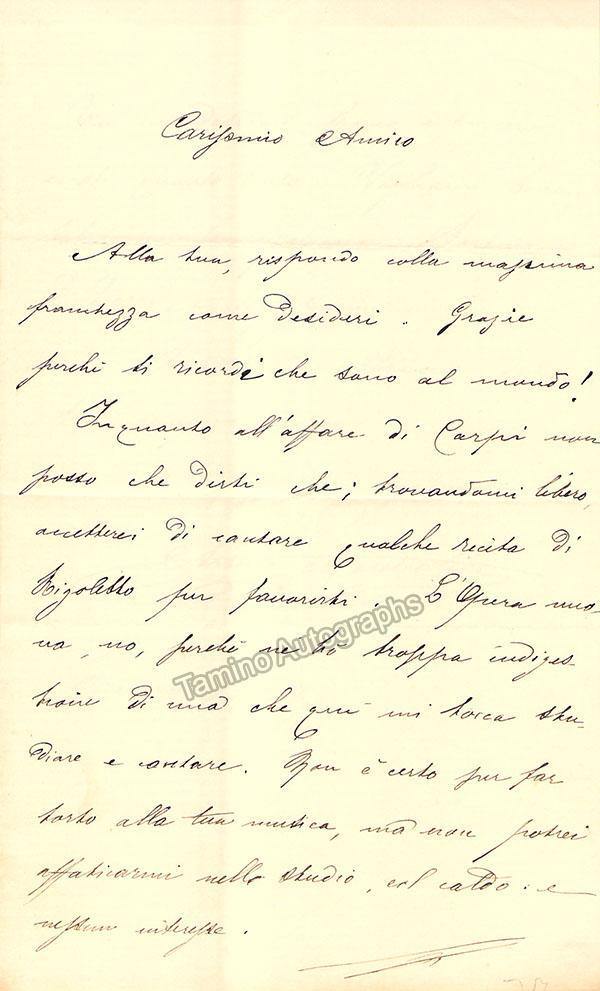 Carissimo Amico
Alla tua, rispondo colla massima
franchezza come desideri. Grazie
perchè ti ricordi che sono al mondo!
Inquanto all'affare di Carpi non
posso che dirti che; trovandomi libero,
accetterei di cantare qualche recita di
Rigoletto per favorirti. L'Opera nuo-
va, no, perchè ne ho troppa indiges-
tione di una che qui mi tocca stu-
diare e cantare. Non è certo per far
torto alla tua musica, ma non potrei
affaticarmi nello studio, col caldo e
nessun interesse.
Tamino Autographs